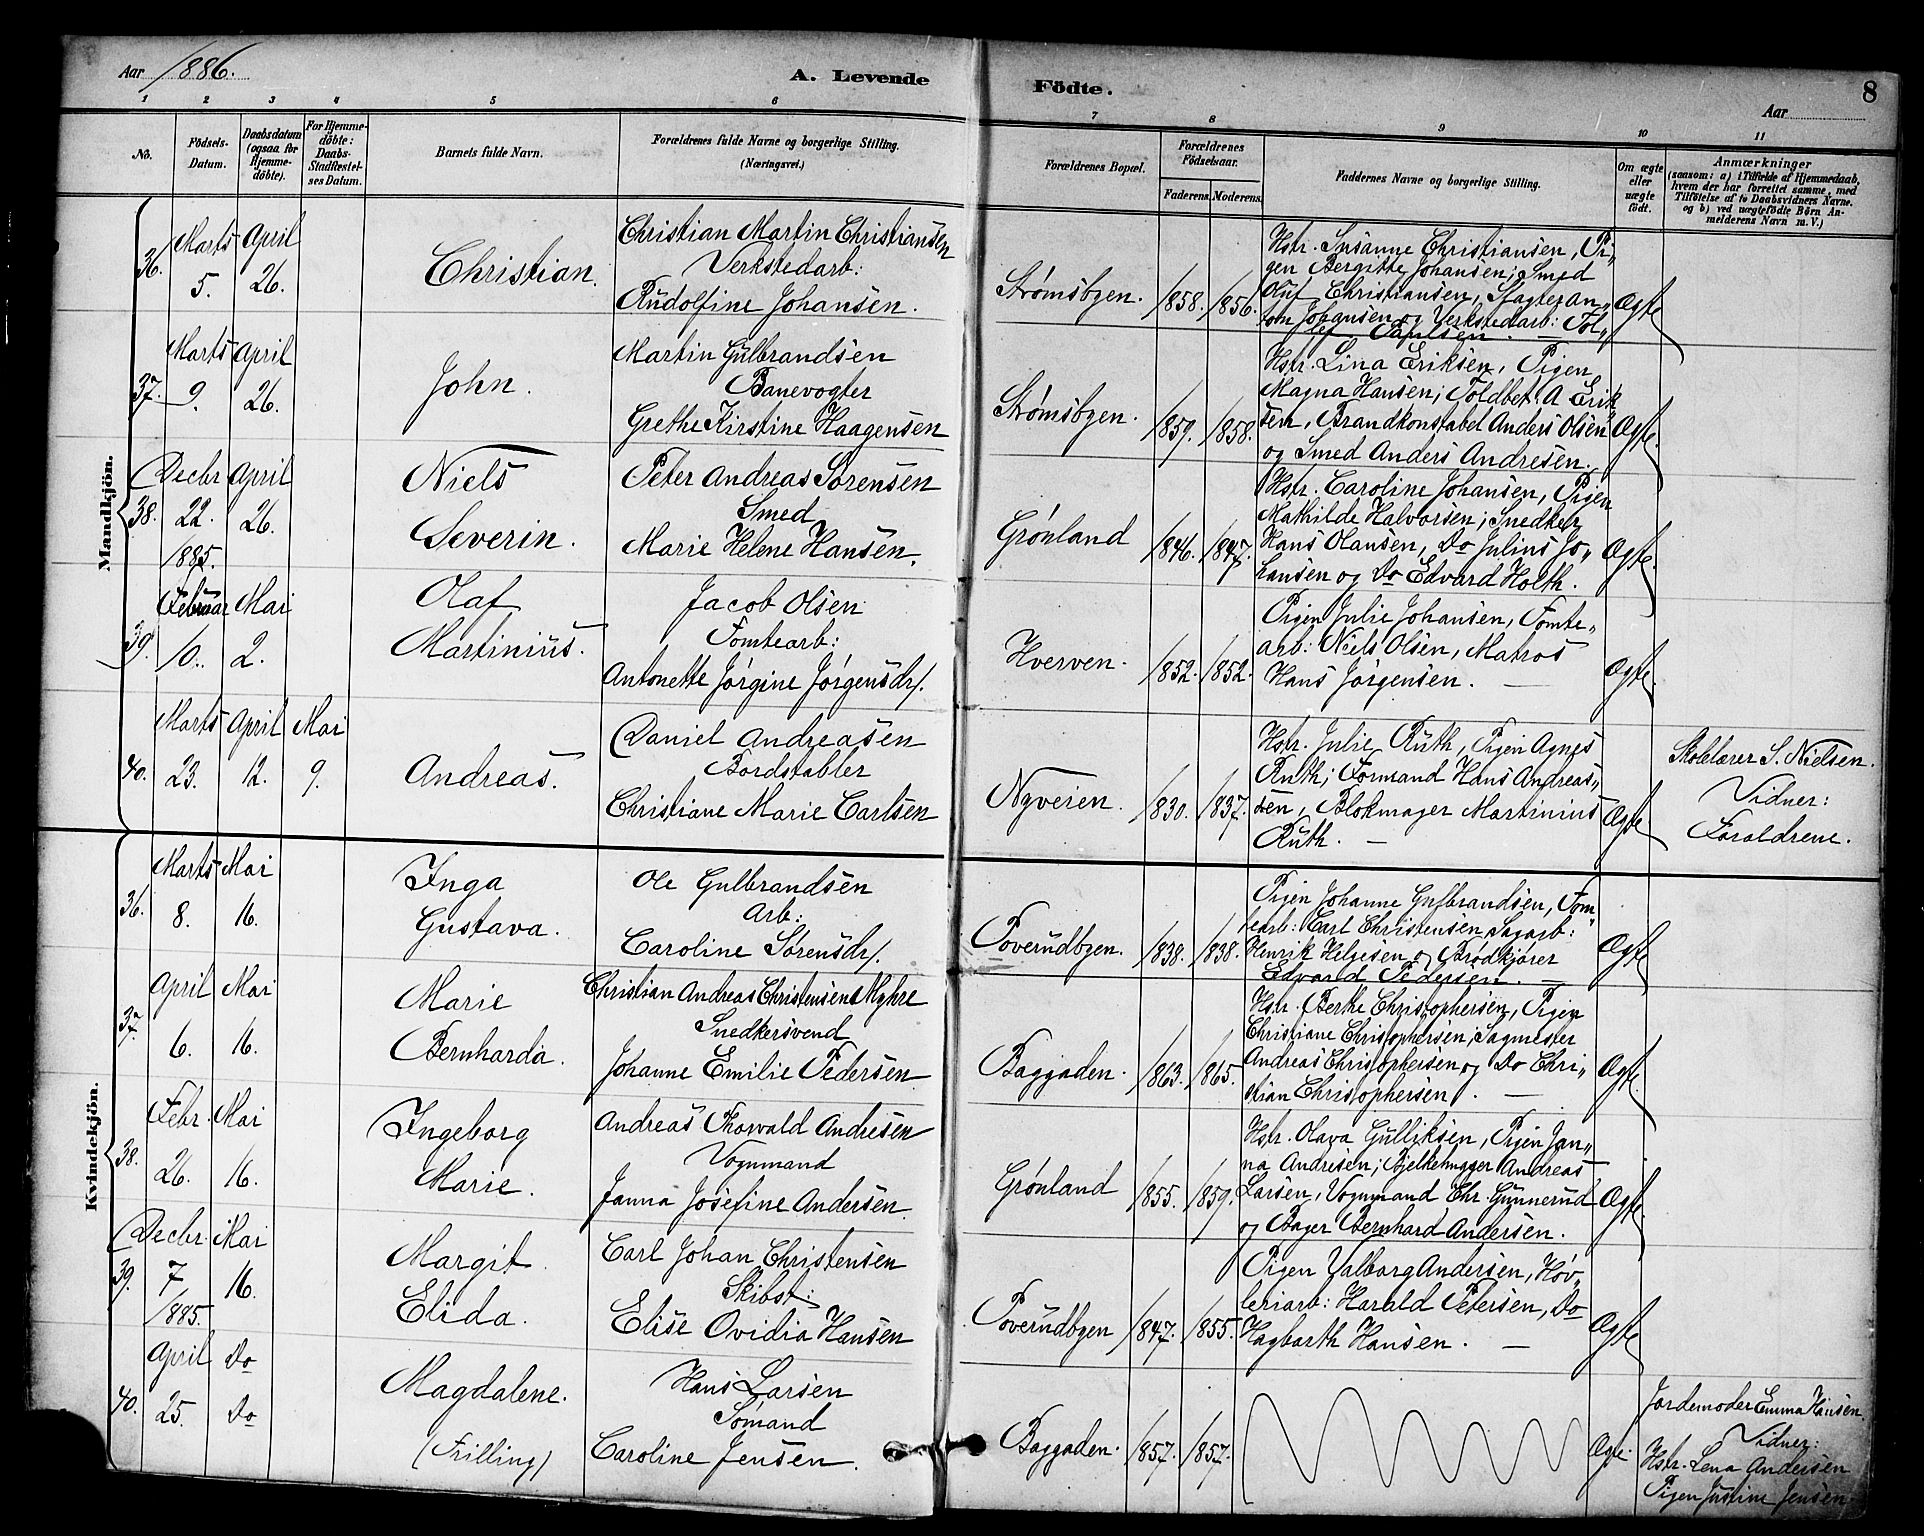 Aar 1886.
A. Levende
Födte.
8
Aar
1 2 3 4 5 6 7 8 9 10 11
No.
Födsels-
Datum.
Daabsdatum
(ogsaa for
Hjemme-
döbte).
For Hjemme-
döbte:
Daabs-
Stadfæstel-
ses Datum.
Barnets fulde Navn.
Forældrenes fulde Navne og borgerlige Stilling.
(Næringsvei.)
Forældrenes Bopæl.
Forældrenes
Födselsaar.
Faderens. Moderens.
Faddernes Navne og borgerlige Stilling.
Om ægte
eller
uægte
födt.
Anmærkninger
(saasom: a) i Tilfælde af Hjemmedaab,
hvem der har forrettet samme, med
Tilföielse af to Daabsvidners Navne.
og b) ved uægtefödte Börn An-
melderens Navn m. V.)
Mandkjön.
36.
Marts April
5. 26.
Christian.
Christian Martin Christiansen
Verkstedarb:
Rudolfine Johansen.
Strømsbgen.
1858. 1856.
Hstr. Susanne Christiansen, Pi„
gen Bergitte Johansen; Smed
Oluf Christiansen, Slagter An„
tom Johansen og Verkstedarb: Tol„
lef Paulsen. —
Ægte
37.
Marts April
9. 26.
John.
Martin Gulbrandsen
Banevogter
Grethe Kirstine Haagensen
Strømsbgen.
1859. 1858.
Hstr. Lina Eriksen, Pigen
Magna Hansen; Toldbet. A Erik
sen, Brandkonstabel Anders Olsen
og Smed Anders Andresen.
Ægte.
38.
Decbr April
22. 26.
1885.
Niels
Severin.
Peter Andreas Sørensen
Smed
Marie Helene Hansen.
Grønland
1846. 1847.
Hstr. Caroline Johansen, Pigen
Mathilde Halvorsen; Snedker
Hans Olausen, Do Julius Jo„
hansen og Do Edvard Holth.
Ægte.
39.
Februar Mai
10. 2.
Olaf
Martinius.
Jacob Olsen
Tomtearb:
Antonette Jørgine Jørgensdr.
Hverven.
1852. 1852.
Pigen Julie Johansen, Tomte„
arb: Niels Olsen, Matros
Hans Jørgensen. —
Ægte.
40.
Marts April Mai
23. 12. 9.
Andreas.
Daniel Andreasen
Bordstabler
Christiane Marie Carlsen
Nyveien.
1830. 1837.
Hstr. Julie Ruth, Pigen Agnes
Ruth; Formand Hans Andreas„
sen, Blokmager Martinius
Ruth. —
Ægte
Skolelærer S. Nielsen.
Vidner:
Forældrene.
Kvindekjön.
36.
Marts Mai
8. 16.
Inga
Gustava.
Ole Gulbrandsen
Arb:
Caroline Sørensdr.
Toverudbgen.
1838. 1838.
Pigen Johanne Gulbrandsen, Tom„
tearb: Carl Christensen, Sagarb:
Henrik Helgesen og Brødkjører
Edvard Pedersen. —
Ægte
37.
April Mai
6. 16.
Marie
Bernharda.
Christian Andreas Christensen Myhre
Snedkersvend
Johanne Emilie Pedersen
Baggaden.
1863. 1865.
Hstr. Berthe Christophersen, Pigen
Christiane Christophersen; Sagmester
Andreas Christophersen og Do Chri„
stian Christophersen. —
Ægte.
38.
Febr. Mai
26. 16.
Ingeborg
Marie.
Andreas Thorvald Andresen
Vognmand
Janna Josefine Andersen.
Grønland
1855. 1859.
Hstr. Olava Gulliksen, Pigen Jan„
na Andresen; Bjelkehugger Andreas
Larsen, Vognmand Chr. Gunnerud
og Bager Bernhard Andersen.
Ægte.
39.
Decbr. Mai
7 16.
1885.
Margit
Elida.
Carl Johan Christensen
Skibst:
Elise Ovidia Hansen
Toverudbgen
1847. 1855.
Pigen Valborg Andersen, Høv„
leriarb: Harald Petersen, Do
Hagbarth Hansen. —
Ægte
40.
April Do
25. Do
Magdalene.
(Trilling)
Hans Larsen
Sømand
Caroline Jensen.
Baggaden.
1857. 1857.
Ægte.
Jordemoder Emma Hansen.
Vidner:
Hstr. Lena Andersen
Pigen Justine Jensen